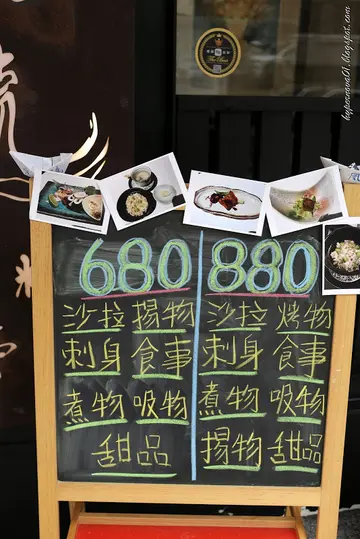 680
沙拉 揚物
刺身 食事
煮物 吸物
甜品
880
沙拉 烤物
刺身 食事
煮物 吸物
揚物 甜品
The Best
hypernova01.blogspot.com